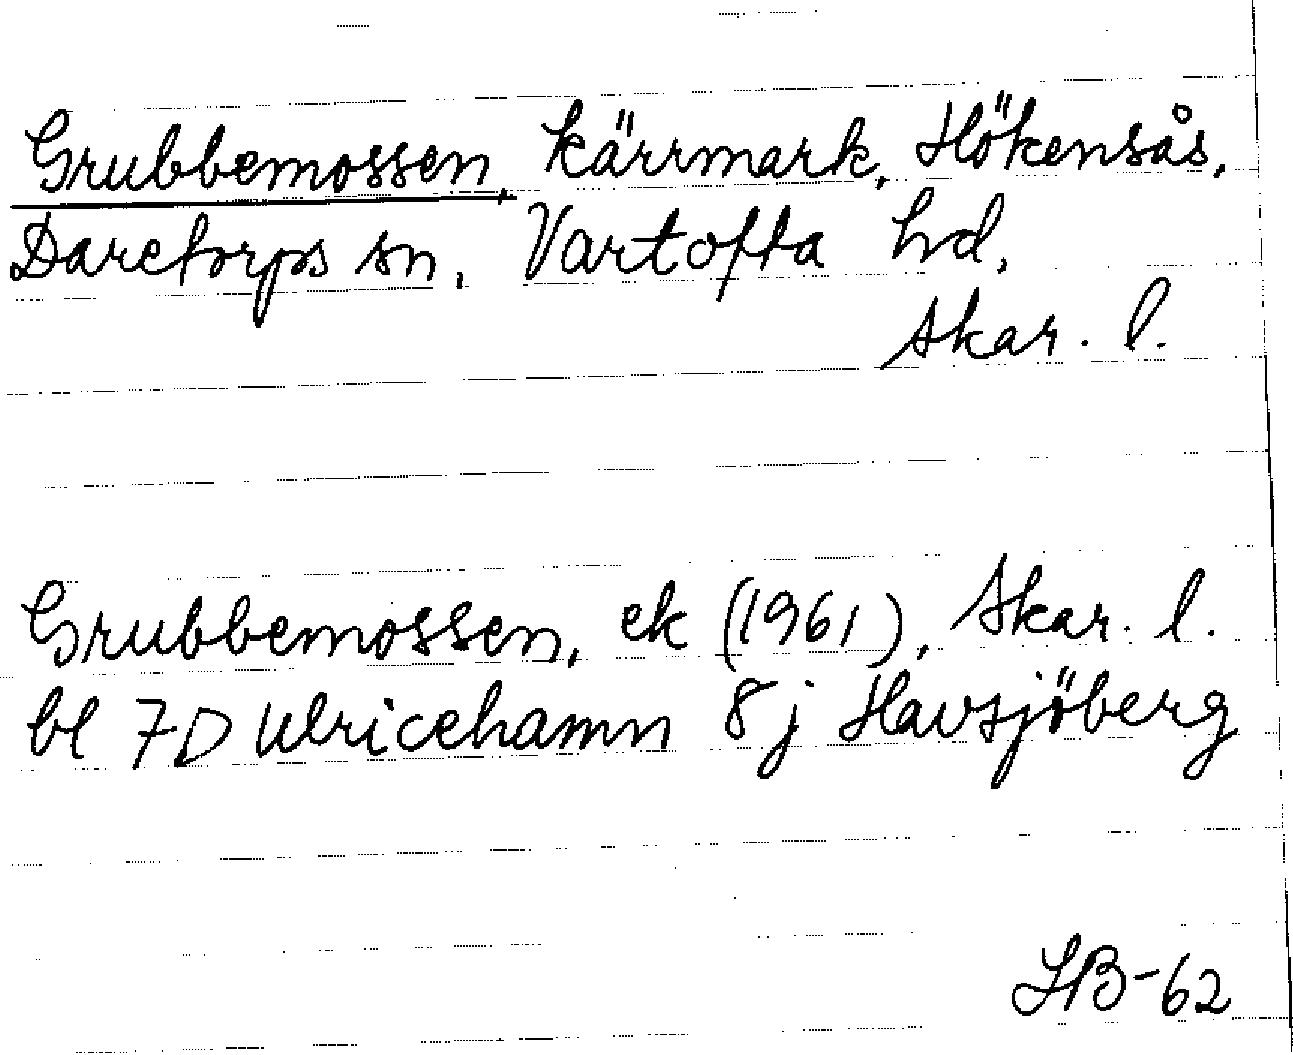 Grubbemossen, kärrmark, Hökensås,
Daretorps sn, Vartofta hd,
Skar. l.
Grubbemossen, ek (1961), Skar. l.
bl 7D Ulricehamn 8j Havsjöberg
LB-62